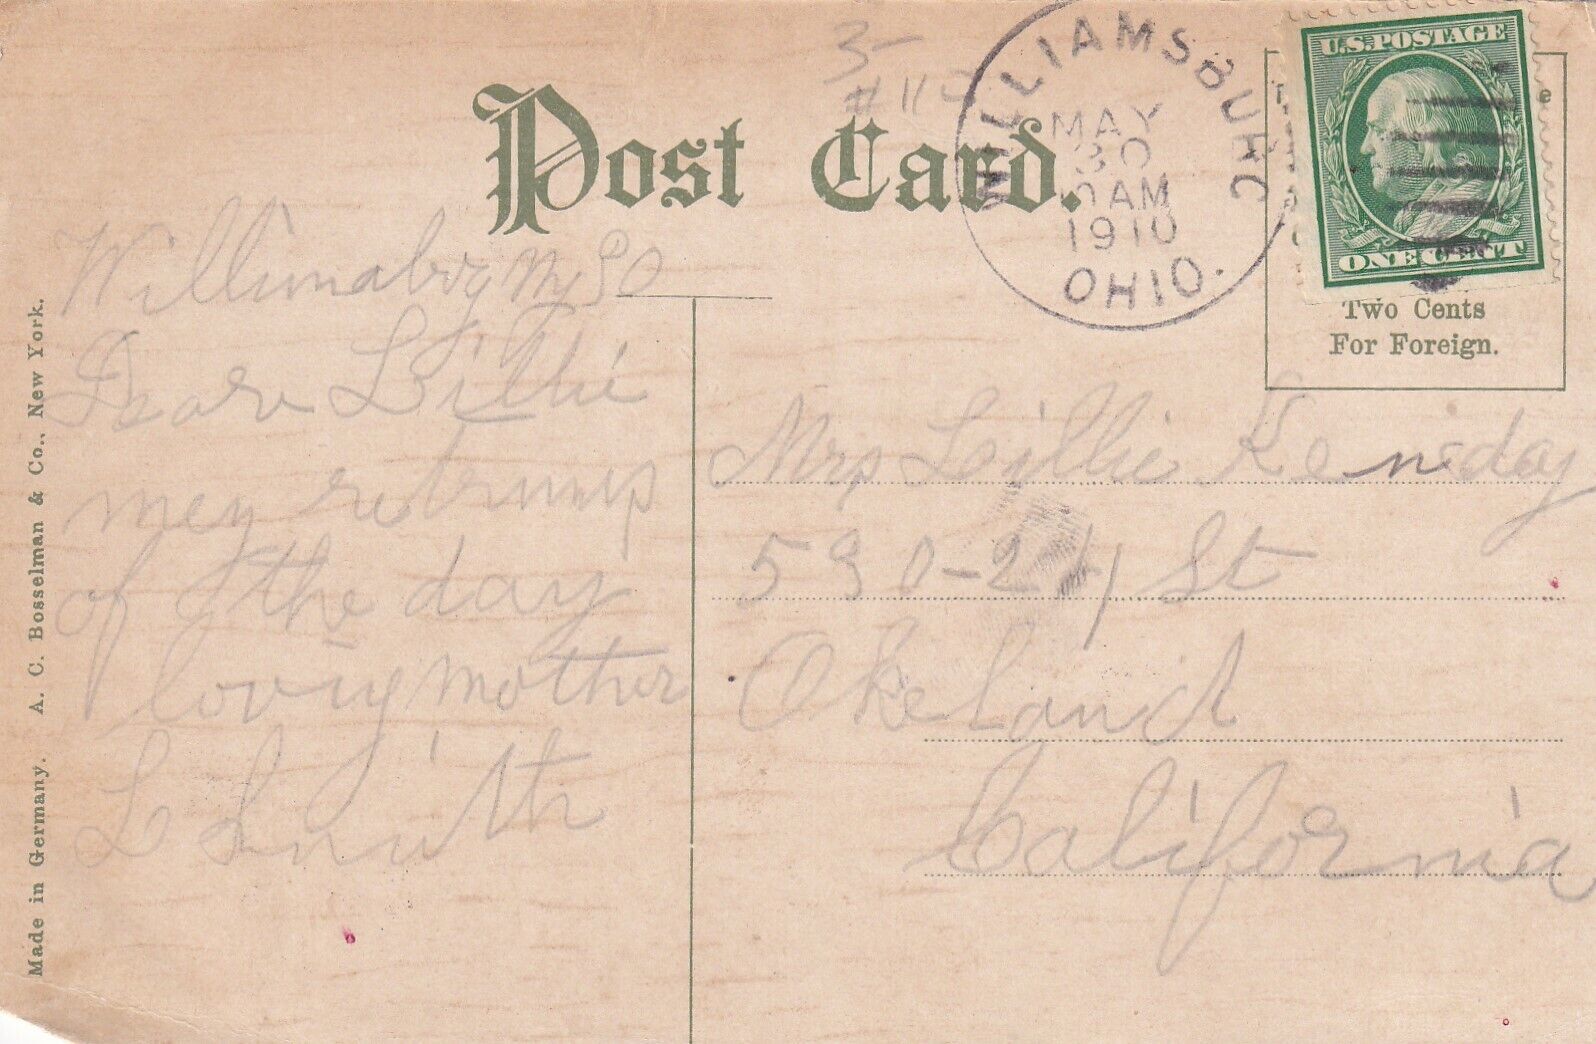 3-
Post Card.
WILLIAMSBURG
MAY
30
AM
1910
OHIO.
U.S. POSTAGE
ONE CENT
e
Two Cents
For Foreign.
Dear Lillie
men returns
of the day
loving mother
L Smith
Mrs Lillie Keneday
530-24 St
Okeland
California
Made in Germany. A. C. Bosselman & Co., New York.